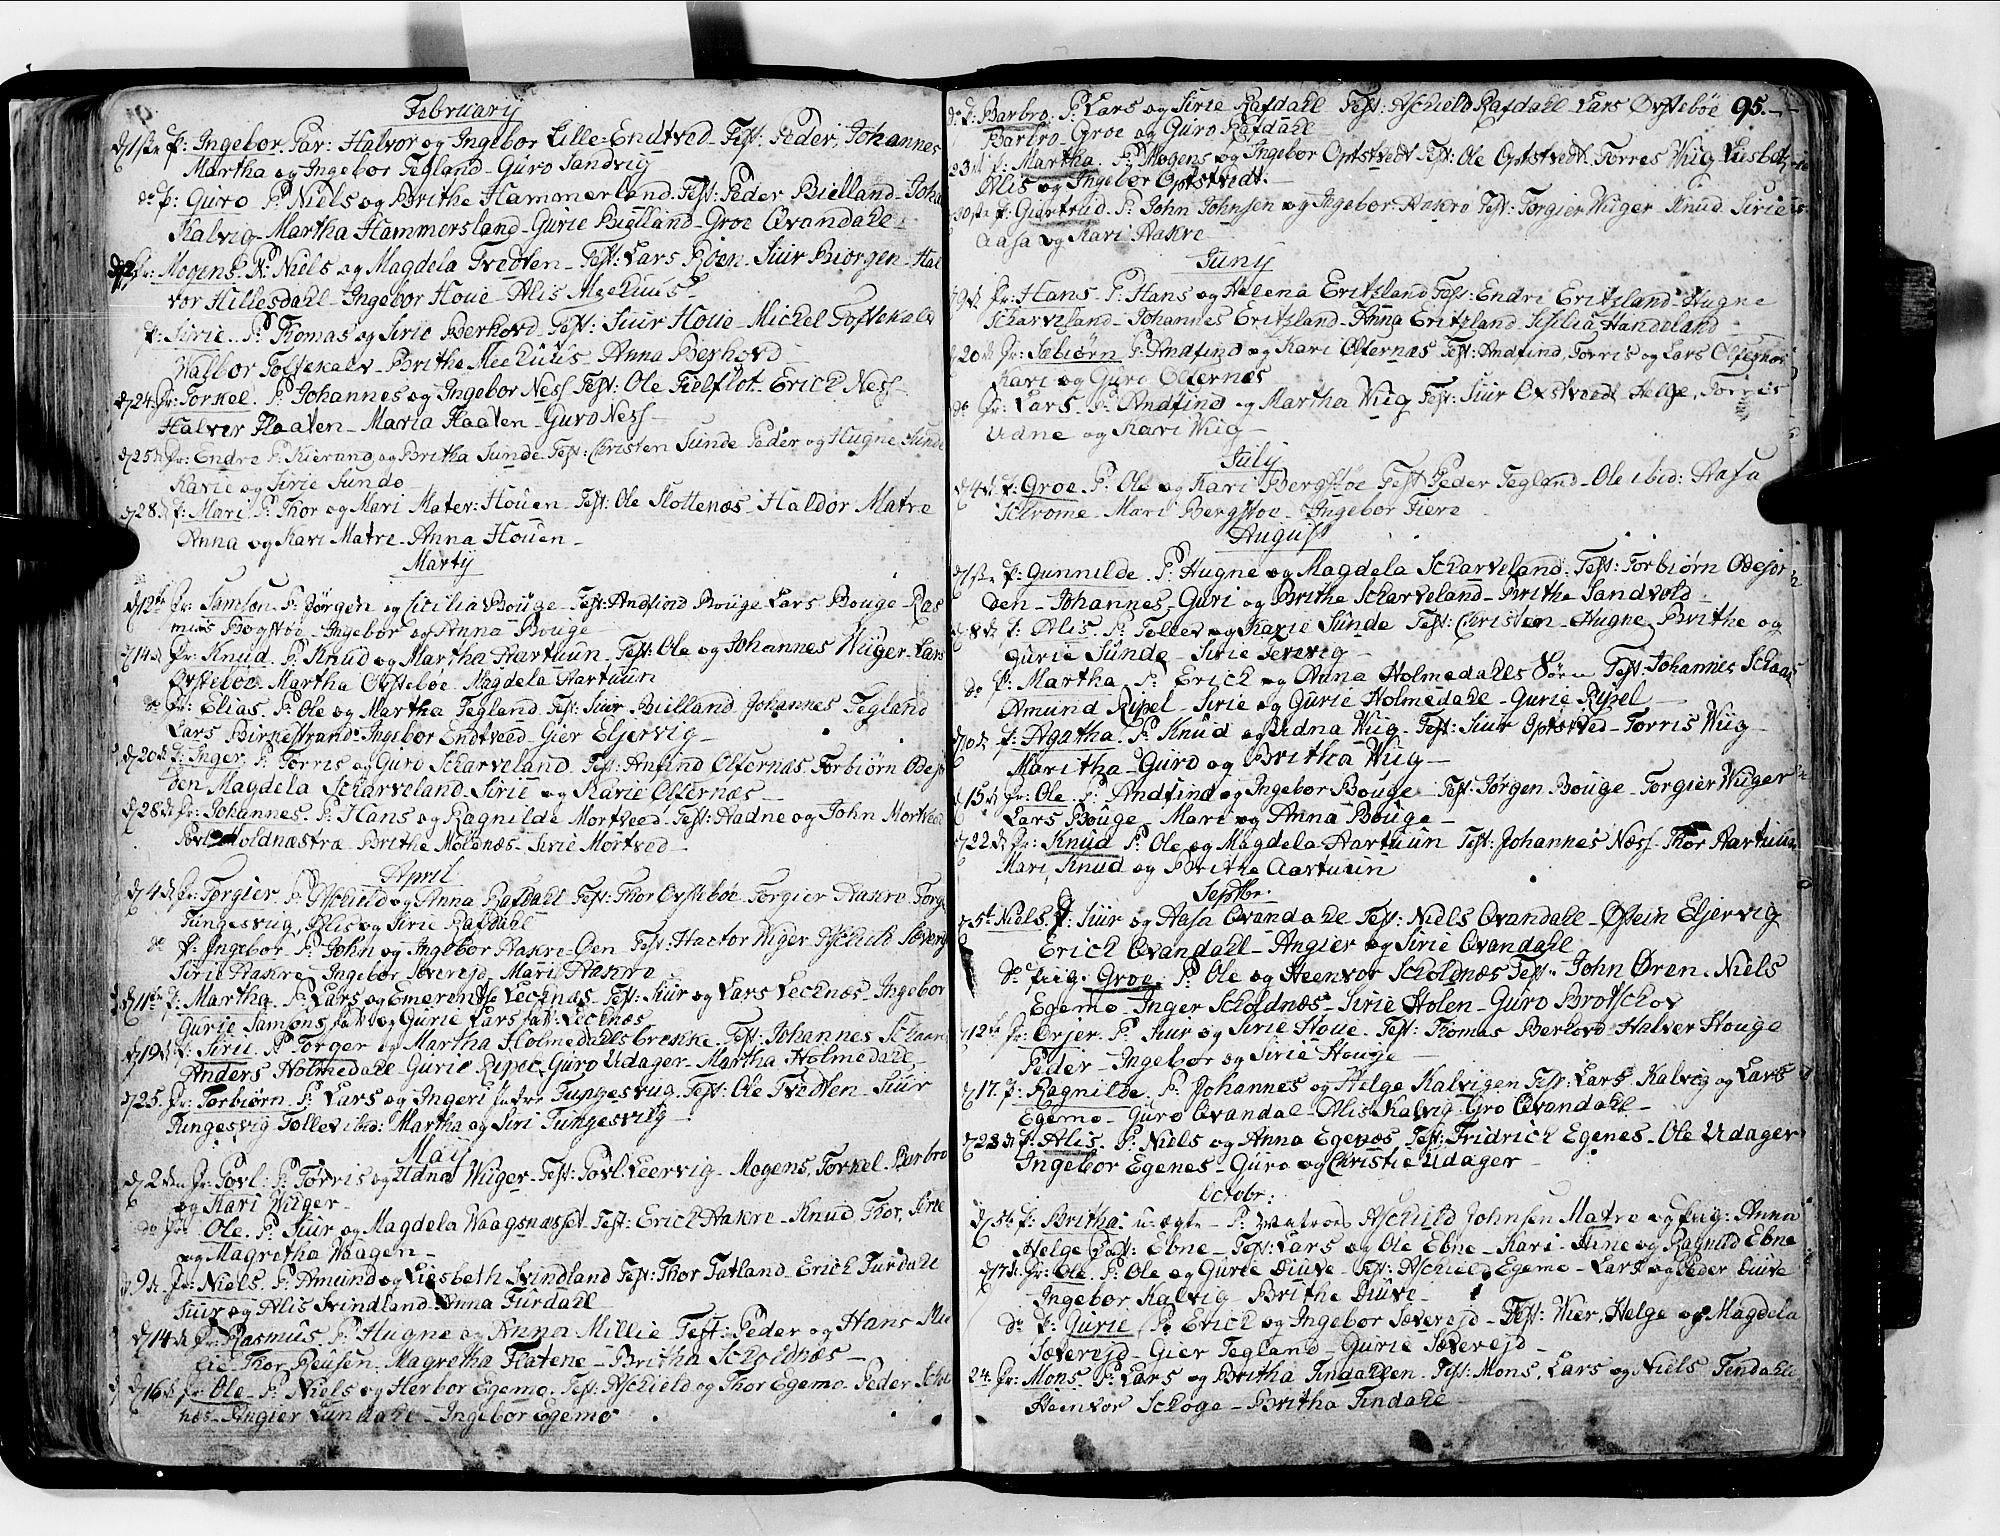 February
d 1ste p: Ingebor. Par: Halvor og Ingebor Lille-Endtved. Test: Peder, Johannes
Martha og Ingebor Tegland-Guro Sandvig
do p: Guro P: Niels og Brithe Hammerland. Test: Peder Bielland-Joha
Kalvig-Martha Hammersland-Gurie Bielland-Groe Qvandahl
dr: Mogens. P: Niels og Magdela Tvedten-Test: Lars Siur Biørgen-Hal
vor Hillesdahl-Ingebor Houe-Alis
p: Sirie. P: Thomas og Sirie Berhovd-Test: Siur Houe-Michel Toftekalv
Walbor Toftekalv-Brithe Anna Berhovd
d 24. dr: Torkel. P: Johannes og Ingebor Ness Test: Ole Erick Ness
Halver Flaaten-Maria Flaaten-Guro Ness
d 25 dr: Endre P: og Britha Sunde. Test: Christen Sunde Peder og Hugne Sunde
Karie og Sirie Sunde
d 28 p: Mari. P: Thor og Mari Mater: Houen-Test: Ole Haldor Matre
Anna og Kari Matre-Anna Houen-
Marty
d 12te dr: Samson. P: Jørgen og Sicilia Bouge-Test: Andfind Bouge-Lars Bouge-Ras
mus Ingebor og Anna Bouge
d 14 dr: Knud. P: Knud og Martha Aartuun-Test: Ole og Johannes Wiiger-Lars
Øvstebøe-Martha Øvstebøe-Magdela Aartuun
do dr: Elias. P: Ole og Martha Tegland Test: Siur Bielland Johannes Tegland
Lars Birkestrand-Ingebor Endtveed-Gier Eljervig-
d 20 p: Inger. P: Torris og Guro Scharveland-Test: Amund Olfernæs, Torbiørn Odesjor
den Magdela Scharveland-Sirie og Karie Olfernæs-
d 28 dr: Johannes. P: Hans og Ragnilde Mortveed-Test: Aadne og John Mortveed
Povl Brithe Sirie Mortved-
April
d 4 dr: Torgier. P: Aschield og Anna Rafdahl-Test: Thor Øvstebøe-Torgier Aakre
Tungesvig, Alis og Sirie Rafdahl
do p: Ingebor-P: John og Ingebor Aakre-Øen-Test: Hactor Wiger
Sirie Aakre-Ingebor Mari Aakre
d 11te p: Martha. P: Lars og Emerentse Lecknæs-Test: Siur og Lars Lecknæs-Ingebor
Gurie Samsons og Gurie Lars Lecknæs
d 19 p: Sirie. P: Torger og Martha Holmedahlsbrekke Test: Johannes
Anders Holmedahl-Gurie Ripel-Guro Udager-Martha Holmedahl
d 25. dr: Torbiørn. P: Lars og Ingeri Tungesvug-Test: Ole Tvedten-Siur
Tungesvig Tollev ibid: Martha og Siri Tungesvug-
May
d 2 dr: Povl: P: Torris og Udna Wiiger-Test: Povl Leervig-Mogens, Torkel-Barbro
og Kari Wiiger-
do dr: Ole. P: Siur og Magdela Waagsnæsset-Test: Erich Aakre-Knud, Thor, Sirie
og Magretha Waagen-
d 9 dr: Niels. P: Amund og Liesbeth Svindland Test: Thor Tatland-Erich Furdahl
Siur og Alis Svindland-Anna Furdahl
d 14 dr: Rasmus P: Hugne og Anna Millie-Test: Peder og Hans Mil
lie-Thor Magretha Flatene-Britha Scholdnæs-
d 16 dr: Ole-P: Niels og Herbor Egemo-Test: Aschield og Thor Egemo-Peder Schol
næs-Angier Lundahl-Ingebor Egemo
do p: Barbro. P: Lars og Sirie Rafdahl Test: Aschield Rafdahl-Lars Øvstebøe 95.
Barbro Groe og Guro Rafdahl
23 p: Martha. P: Mogens og Ingebor Optstvedt Test: Ole Optstvedt. Torres Wiig
Alis og Ingebor Optstvedt-
30te p: Giertrud. P: John Johnsen og Ingebor Aakre Test: Torgier Wiiger-Knud Sirie
Aasa og Kari Aakre
Juny
d 9 dr: Hans-P: Hans og Helena Eritzland Test: Endri Eritzland-Hugne
Scharveland-Johannes Eritzland-Anna Eritzland Sicilia Handeland
d 20 dr: Sæbiørn P: Andfind og Kari Olfernæs Test: Andfind, Torris og Lars Olfernæs
Kari og Guro Olfernæs
do dr: Lars. P: Andfind og Martha Wiig Test: Siur Helge, Torris
Udne og Kari Wiig-
July
d 4 p: Groe. P: Ole og Kari Bergstøe Test Peder Tegland-Ole ibid: Aasa
Schrome-Mari Bergstøe-Ingebor Fiere
August
d 1ste p: Gunnilde. P: Hugne og Magdela Scharveland-Test: Torbiørn Odesjor
den-Johannes, Guri og Brithe Scharveland-Brithe Sandvold
d 8 p: Alis. P: Tollev og Karie Sunde Test: Christen-Hugne, Brithe og
Gurie Sunde-Sirie
do p: Martha. P: Erich og Anna Holmedahls Test: Johannes
Amund Ripel-Sirie og Gurie Holmedahl-Gurie Ripel-
d 10 p: Agatha. P: Knud og Udna Wiig-Test: Siur Optstved-Torris Wiig
Maritha-Guro og Britha Wiig-
d 15 dr: Ole. P: Andfind og Ingebor Bouge Test: Jørgen Bouge-Torgier Wiiger
Lars Bouge-Mari og Anna Bouge-
d 22 dr: Knud P: Ole og Magdela Aartuun Test: Johannes Næss-Thor Aartuun
Mari, Knud og Brithe Aartuun
Septbr:
d 5t Niels. P: Siur og Aasa Qvandahl Test: Niels Qvandahl-Østein Eljervig
Erich Qvandahl-Angier og Sirie Qvandahl
do pig. Groe. P: Ole og Heenvor Scholdnæs Test: John Øren-Niels
Egemo-Inger Scholdnæs-Sirie Holen-Guro Brotschov
d 12te dr: Ørjer. P: Siur og Sirie Houe-Test: Thomas Berhovd-Halver Houge
Peder-Ingebor og Sirie Houge
d 17. p: Ragnilde. P: Johannes og Helge Kalvigen Test: Lars Kalvig og Lars
Egemo-Guro Qvandal-Alis Kalvig-Gro Qvandahl-
d 28 p: Alis. P: Niels og Anna Egenæs Test: Fridrich Egenes-Ole Udager
Ingebor Egenes-Guro og Christie Udager-
Octobr:
d 5t p: Britha: u: ægte-P: Matros Aschild Johnsen Matre og pig: Anna
Helge Ebne-Test: Lars og Ole Ebne-Kari-Stine og Ragnild Ebne
d 17 dr: Ole. P: Ole og Gurie Diuve-Test: Aschield Egemo-Lars og Peder Diuve
Ingebor Kalvig-Brithe Diuve-
do p: Gurie. P: Erich og Ingebor Sæverejd-Test: Wier, Helge og Magdela
Sæverejd-Gier Tegland-Gurie Sæverejd-
24. dr: Mons. P: Lars og Britha Tindallen-Test: Mons, Lars og Niels Tendahl
Heenvor Schoge-Britha Tindahl